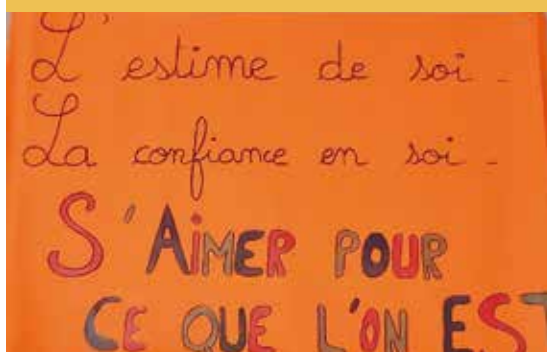 L'estime de soi -
La confiance en soi -
S'AiMER POUR
CE QUE L'ON EST